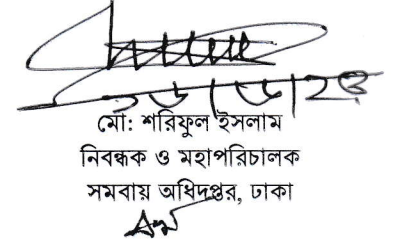 মো: শরিফুল ইসলাম
নিবন্ধক ও মহাপরিচালক
সমবায় অধিদপ্তর, ঢাকা